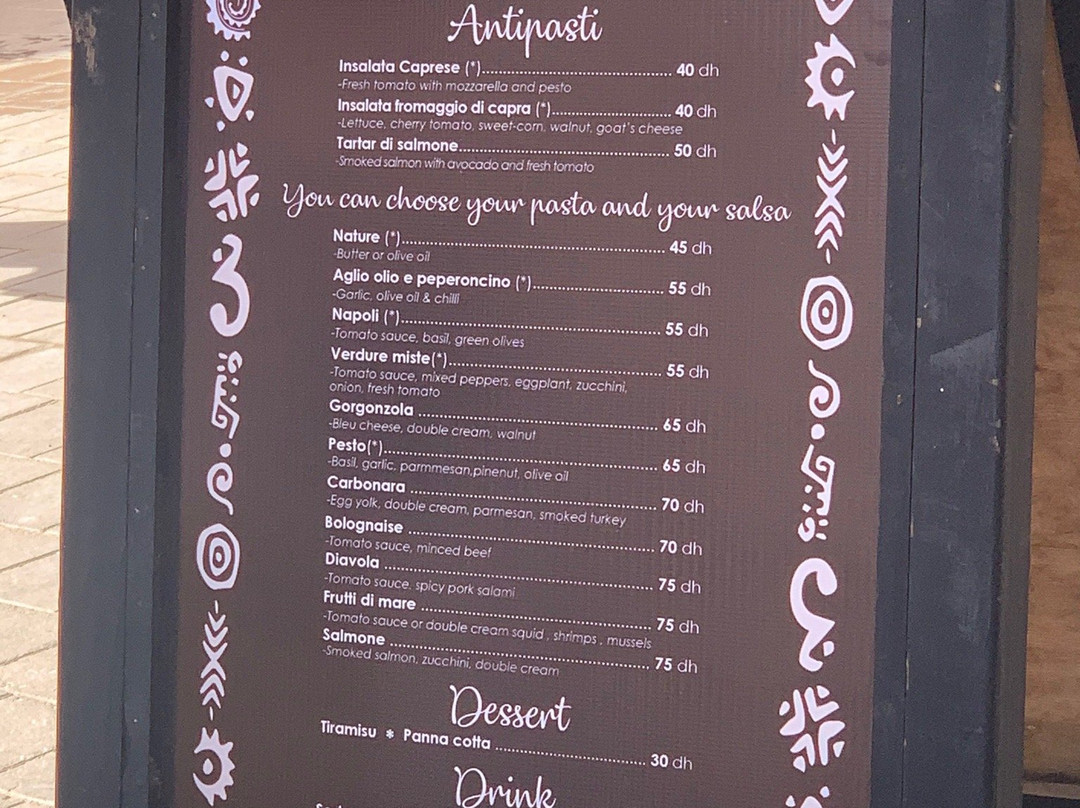 Antipasti
Insalata Caprese (*)........................................ 40 dh
-Fresh tomato with mozzarella and pesto
Insalata fromaggio di capra (*).......................... 40 dh
-Lettuce, cherry tomato, sweet-corn, walnut, goat's cheese
Tartar di salmone............................................. 50 dh
-Smoked salmon with avocado and fresh tomato
You can choose your pasta and your salsa
Nature (*)........................................................ 45 dh
-Butter or olive oil
Aglio olio e peperoncino (*)............................ 55 dh
-Garlic, olive oil & chilli
Napoli (*)........................................................ 55 dh
-Tomato sauce, basil, green olives
Verdure miste(*).............................................. 55 dh
-Tomato sauce, mixed peppers, eggplant, zucchini,
onion, fresh tomato
Gorgonzola .................................................... 65 dh
-Bleu cheese, double cream, walnut
Pesto(*)........................................................... 65 dh
-Basil, garlic, parmmesan,pinenut, olive oil
Carbonara ...................................................... 70 dh
-Egg yolk, double cream, parmesan, smoked turkey
Bolognaise ..................................................... 70 dh
-Tomato sauce, minced beef
Diavola .......................................................... 75 dh
-Tomato sauce, spicy pork salami
Frutti di mare .................................................. 75 dh
-Tomato sauce or double cream squid , shrimps , mussels
Salmone ......................................................... 75 dh
-Smoked salmon, zucchini, double cream
Dessert
Tiramisu * Panna cotta ................................ 30 dh
Drink